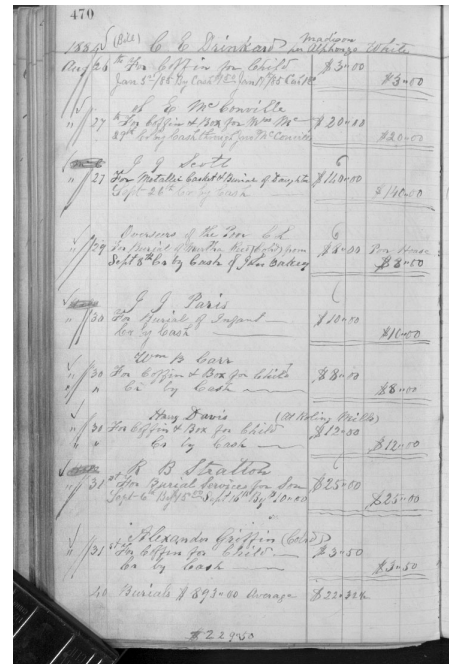 470
1884 (Bill) C. E. Drinkard Madison per Alphonzo White
Aug 26th For Coffin for Child $3=00
Jan 5th/85 By Cash Jan 17/85 Cash $3=00
S. E. McConville
" 27th For Coffin & Box for Mrs Mc $20=00
29th Cr By Cash through Jno McConville $20=00
J. J. Scott
" 27 For Metallic Casket & Burial of Daughter $140=00
Sept 26th Cr by Cash $140=00
Overseers of the Poor C. L.
" 29 For Burial of Martha (Col'd) from $8=00 Poor House
Sept 8th Cr by Cash of John Oakey $8=00
J. J. Paris
" 30 For Burial of Infant $10=00
Cr by Cash $10=00
Wm B. Carr
" 30 For Coffin & Box for Child $8=00
" " Cr by Cash $8=00
Davis (At Roling Mills)
" 30 For Coffin & Box for Child $12=00
" " Cr by Cash $12=00
R. B. Stratton
" 31st For Burial Services for Son $25=00
Sept 6th By $15=00 Sept 14th By $10=00 $25=00
Alexander Griffin (Col'd)
" 31st For Coffin for Child $3=50
Cr by Cash $3=50
40 Burials $893=00 Average $22=32½
$229=50